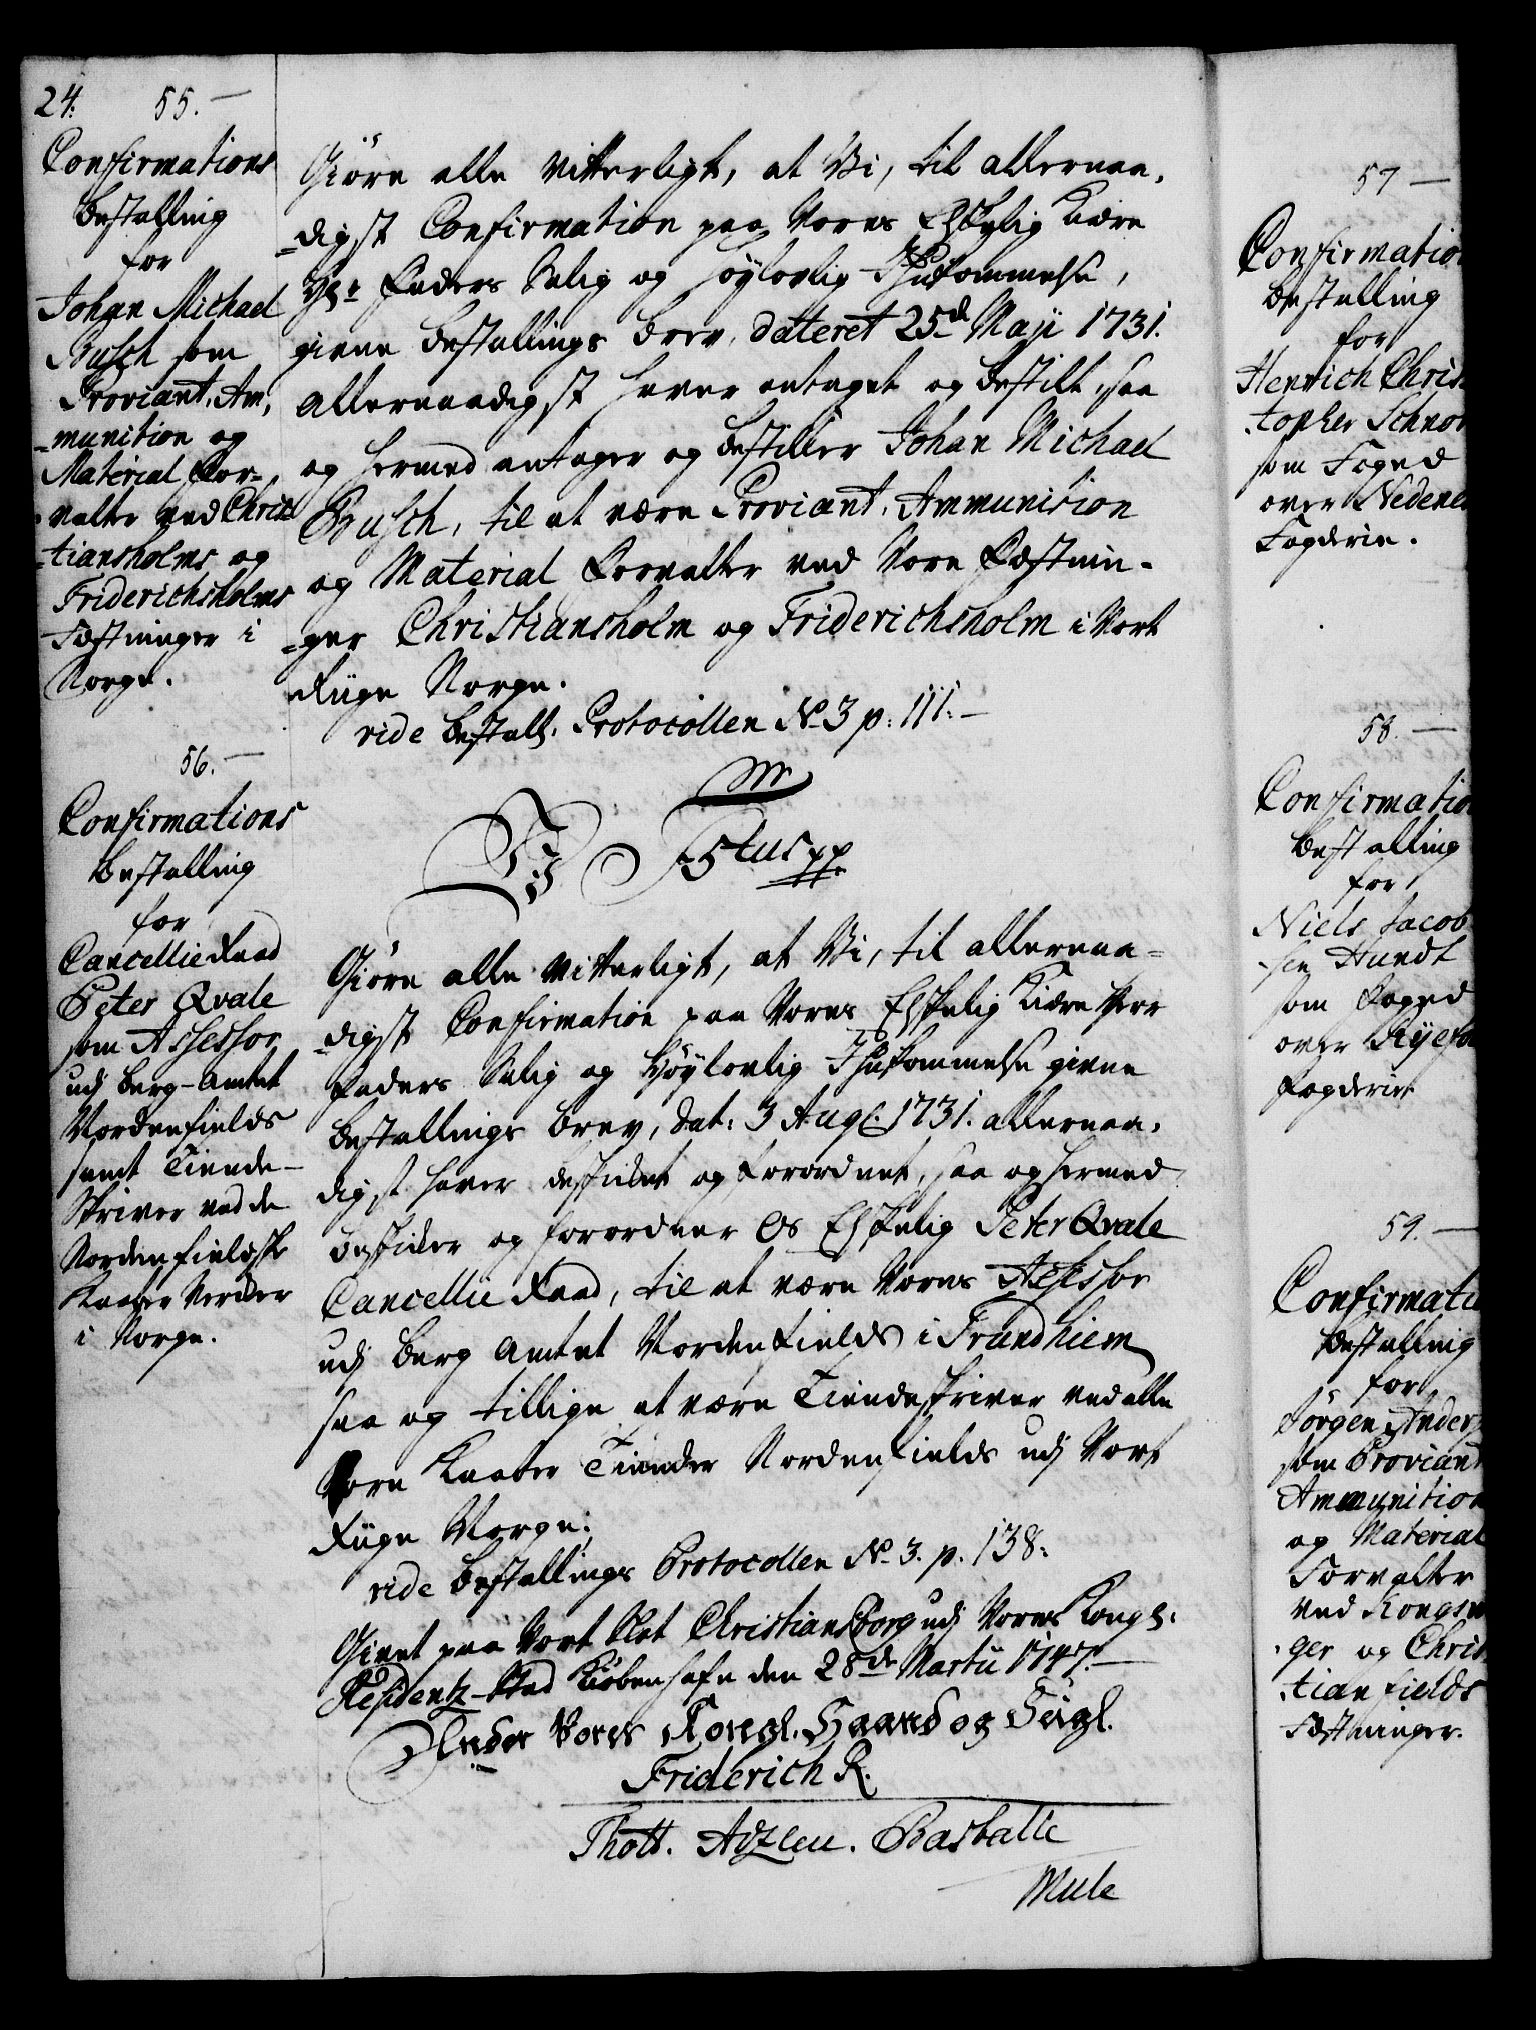 24. 55.
Confirmations
Bestalling
for
Johan Michael
Busch som
Proviant, Am,
munition og
Material For-
valter ved Chris
tiansholms og
Friderichsholms
Fæstninger i
Norge.
Giöre alle vitterligt, at Vi, til allernaa,
digst Confirmation paa Vores Elskelig Kiære
Hr. Faders Salig og Höylovlig Ihukommelse,
givne Bestallings Brev, dateret 25de Maji 1731.
allernaadigst haver antaget og bestilt, saa
og hermed antager og bestiller Johan Michael
Busch, til at være Proviant, Ammunision
og Material Forvalter ved Vore Fæstnin-
ger Christiansholm og Friderichsholm i Vort
Riige Norge.
vide Bestall. Protocollen No 3 p: 111.
56.
Confirmations
Bestalling
for
Cancellie Raad
Peter Qvale
som Assessor
udj Berg-Amtet
Nordenfields
samt Tiende-
Skriver ved de
Nordenfieldske
Kaaber Verker
i Norge.
Vi F 5tus pp
Giöre alle vitterligt, at Vi, til allernaa-
digst Confirmation paa Vores Elskelig Kiære Herr
Faders Salig og Höylovlig Ihukommelse givne
Bestallings Brev, dat: 3 Aug. 1731. allernaa,
digst haver beskikket og forordnet, saa og hermed
beskikker og forordner Os Elskelig Peter Qvale
Cancellie Raad, til at være Vores Assessor
udj Berg Amtet Nordenfields i Trundhiem
saa og tillige at være Tiendeskriver ved alle
Vore Kaaber Tiender Nordenfields udj Vort
Riige Norge;
vide Bestallings Protocollen No 3. p. 138.
Givet paa Vort Slot Christiansborg udj Vores Kongl.
Residentz-Stad Kiöbenhafn den 28de Martii 1747.
Under Vores Kongl. Haand og Seigl.
Friderich R.
Thott. Adzleu. Barballe
Mule
57
Confirmation
Bestalling
for
Henrich Chris
topher Schnor
som Foged
over Nedenes
Fogderie.
58.
Confirmation
Bestalling
for
Niels Jacob
sen Hundt
som Foged
over Ryefo
Fogderie
59.
Confirmatio
Bestalling
for
Jörgen Anders
som Proviant
Ammunition
og Material
Forvalter
ved Kongsw
ger og Chris
tianfields
Fæstninger.